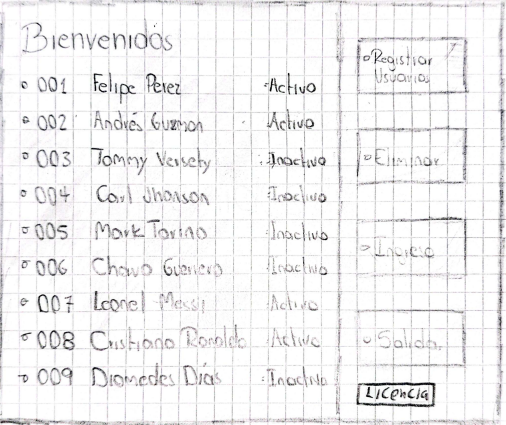 Bienvenidos
001 Felipe Perez Activo
002 Andrés Guzman Activo
003 Tommy Versety Inactivo
004 Carl Jhonson Inactivo
005 Mark Torino Inactivo
006 Chavo Guerrero Inactivo
007 Leonel Messi Activo
008 Cristiano Ronaldo Activo
009 Diomedes Días Inactivo
Registrar
Usuarios
Eliminar
Ingreso
Salida
Licencia